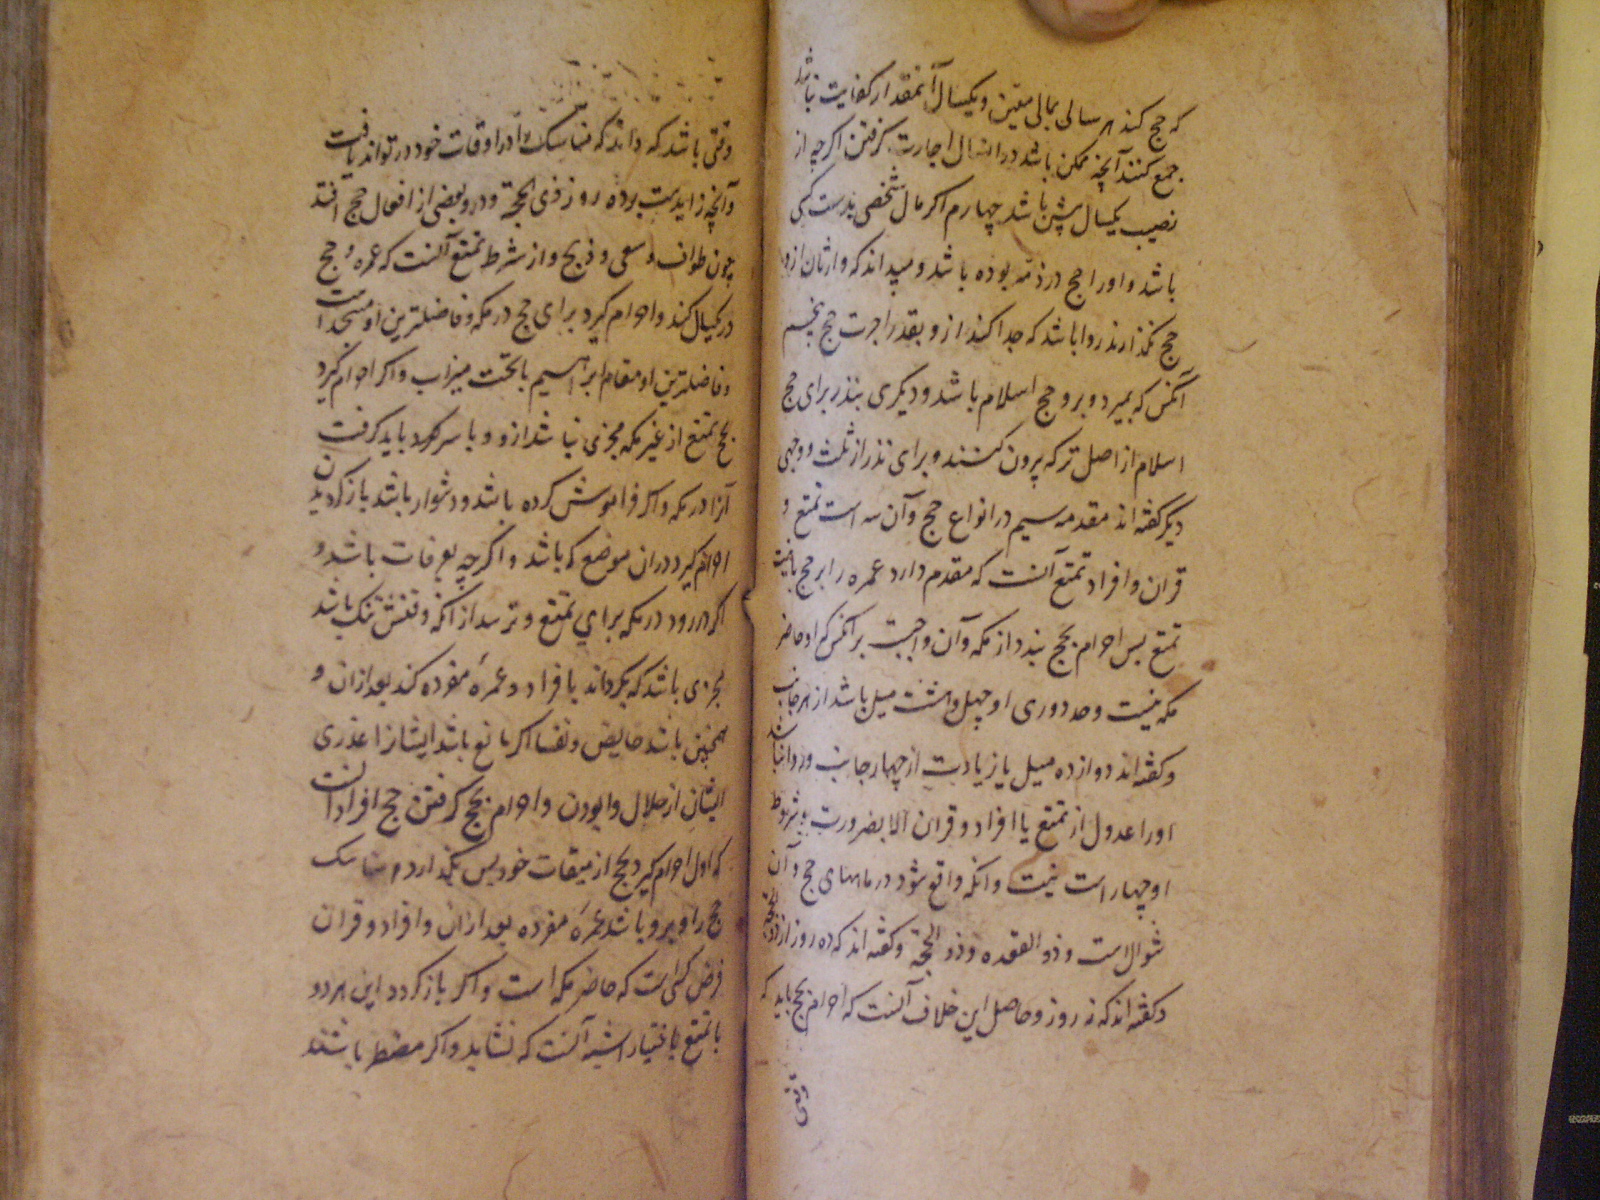 که حج کند هر سالی بمالی معین و یکسال آنمقدار کفایت نباشد
جمع کنند آنچه ممکن باشد در انسال اجارت کرفتن اکرچه از
نصیب یکسال پیش باشد چهارم اکر مال شخصی بدست کسی
باشد و او را حج در ذمه بوده باشد و میداند که وارثان ازو
حج نکذارند روا باشد که جدا کند ازو بقدر اجرت حج پنجم
آنکس که بمیرد و برو حج اسلام باشد و دیکری بنذر برای حج
اسلام از اصل ترکه بیرون کنند و برای نذر از ثلث و وجهی
دیکر کفته اند مقدمه سیم در انواع حج و آن سه است تمتع و
قران و افراد تمتع آنست که مقدم دارد عمره را بر حج بانیت
تمتع پس احرام بحج بندد از مکه و آن واجبست بر آنکس که او حاضر
مکه نیست و حد دوری او چهل و هشت میل باشد از هر جانب
و کفته اند دوازده میل یا زیادت از چهار جانب و روا نباشد
او را عدول از تمتع با افراد و قران الا بضرورت و شروط
او چهار است نیت و انکه واقع شود در ماههای حج و آن
شوالست و ذو القعده و ذو الحجة و کفته اند که ده روز از ذی الحجة
و کفته اند که نه روز و حاصل این خلاف آنست که احرام بحج باید که
وقتی
وقتی باشد که داند که مناسک را در اوقات خود در تواند یافت
و آنچه زایدست بر ده روز ذی الحجة و درو بعضی از افعال حج افتد
چون طواف و سعی و ذبح و از شرط تمتع آنست که عمره و حج
در یکسال کند و احرام کیرد برای حج در مکه و فاضلترین او مسجد است
و فاضلترین او مقام ابراهیم یا تحت میزاب و اکر احرام کیرد
بحج تمتع از غیر مکه مجزی نباشد ازو و با سر کرد باید کرفت
آنرا در مکه و اکر فراموش کرده باشد و دشوار باشد باز کردیدن
احرام کیرد دران موضع که باشد و اکرچه بعرفات باشد و
اکر در رود در مکه برای تمتع و ترسد از آنکه وقتش تنک باشد
مجزی باشد که بکرداند با افراد و عمرهٔ مفرده کند بعد ازان و
همچنین باشد حایض و نفسا اکر مانع باشد ایشانرا عذری
ایشان از حلال وابودن و احرام بحج کرفتن و حج افراد آنست
که اول احرام کیرد بحج از میقات خود پس بکذارد مناسک
حج را و برو باشد عمرهٔ مفرده بعد ازان و افراد و قران
فرض کسیست که حاضر مکه است و اکر باز کردد این هر دو
با تمتع باختیار اشبه آنست که نشاید و اکر مضطر باشند